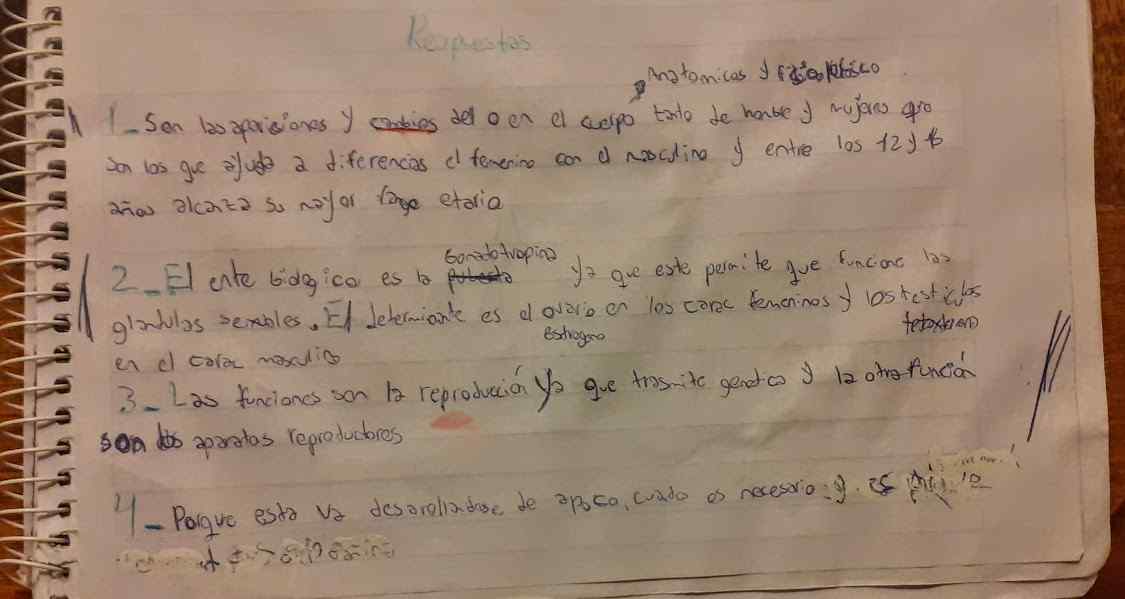 Respuestas
Anatomicos y
1_ Son las apariciones y cambios del o en el cuerpo tanto de hombre y mujeres que
son los que ayuda a diferencias el femenino con el masculino y entre los 12 y 16
años alcanza su mayor rango etario
Gonadotropina
2_ El ente biologico es la pubertad ya que este permite que funcione las
glandulas sexuales. El determiante es el ovario en los carac femeninos y los testiculos
estrogeno
en el carac masculino
3_ Las funciones son la reproducción ya que trasmite genetica y la otra función
son los aparatos reproductores
4_ Porque esta va desarollandose de apoco, cuado es necesario y es